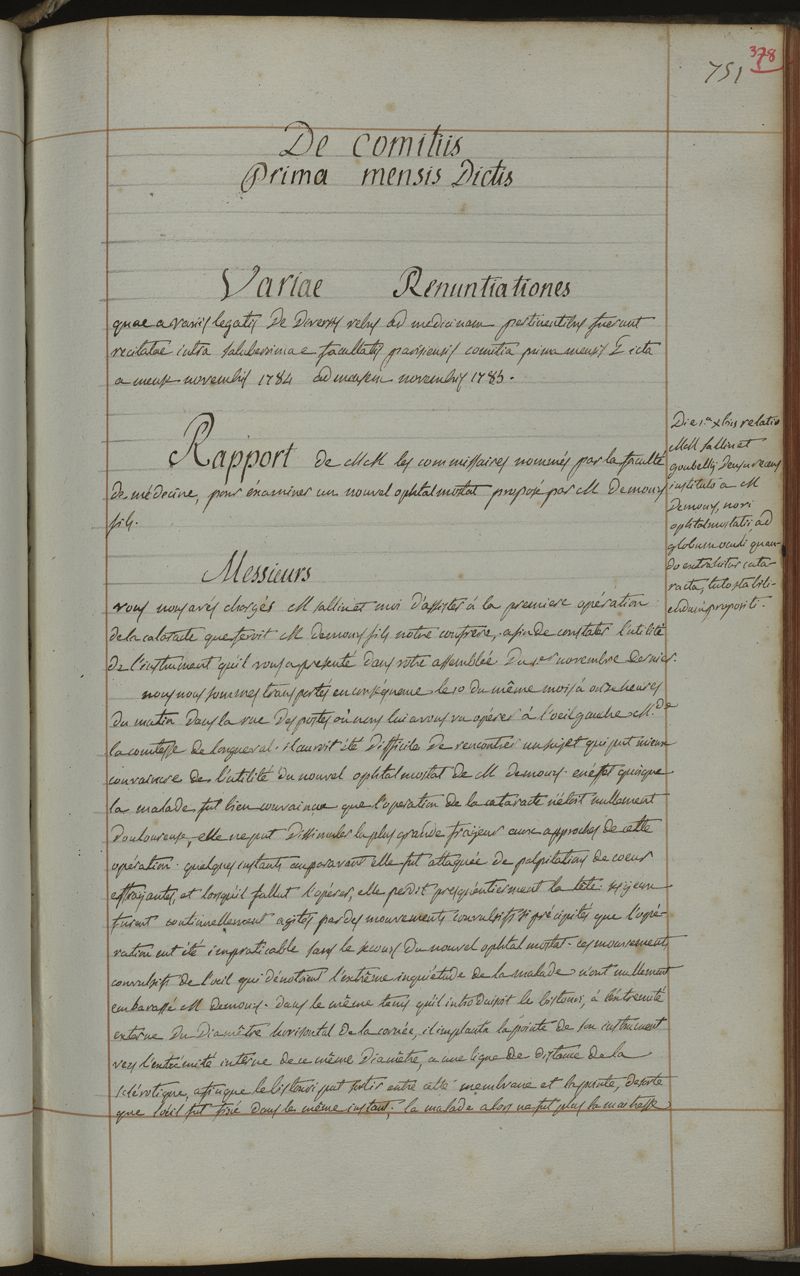 751
378
De comitiis
Prima mensis Dictis
Variae Renuntiationes
quae a variis legatis De Diversis rebus ad medicinam pertinentibus fuerunt
recitatae intra saluberrimae facultatis parisiensis comitia prima mensis Dicta
a mense novembris 1784 ad mensem novembris 1785.
Rapport de MM les commissaires nommés par la faculté
de médecine, pour éxaminer un nouvel ophtalmostat proposé par M Demours
fils.
Die 1.a xbris relatio
MM Sallin et
goubelly
instituto a M
Demours, novi
ophtalmostatis, ad
globum oculi quan-
do extrahitur cata-
racta, tuto stabili-
endum propositi.
Messieurs
vous nous avés chargés M Sallin et moi d'assister à la premiere opération
de la cataracte que feroit M Demours fils notre confrere, afin de constater l'utilité
de l'instrument qu'il vous a presenté dans votre assemblée Du 1er novembre dernier.
nous nous sommes transportés en conséquence le 10 du même mois à onze heures
du matin dans la rue Des postes où nous lui avons vu opérer à l'oeil gauche Mde
la comtesse de Longueval. il auroit été difficile de rencontrer un sujet qui put mieux
convaincre de l'utilité du nouvel ophtalmostat de M Demours. en effet quoique
la malade fut bien convaincue que l'operation de la cataracte n'étoit nullement
Douloureuse, elle ne put Dissimuler la plus grande fraïeur aux approches de cette
opération. quelques instants auparavant elle fut attaquée de palpitations de coeur
effraÿantes, et lorsqu'il fallut l'opérer, elle perdit presqu'entierment la tête. ses yeux
furent continuellement agités par des mouvements convulsifs si précipités que l'opé-
ration eut été impraticable sans le secours du nouvel ophtalmostat. ces mouvements
convulsifs de l'oeil qui dénotoient l'extrême inquiétude de la malade n'ont nullement
embarassé M Demours. dans le même tems qu'il introduisoit le bistouri, à l'extremité
externe du Diamêtre horisontal de la cornée, il implanta la pointe de son instrument
vers l'extrémité interne de ce même Diamêtre, a une ligne de distance de la
sclérotique, afin que le bistouri put sortir entre cette membrane et la pointe, de sorte
que l'oeil fut fixé dans le même instant; la malade alors ne fut plus la maitresse